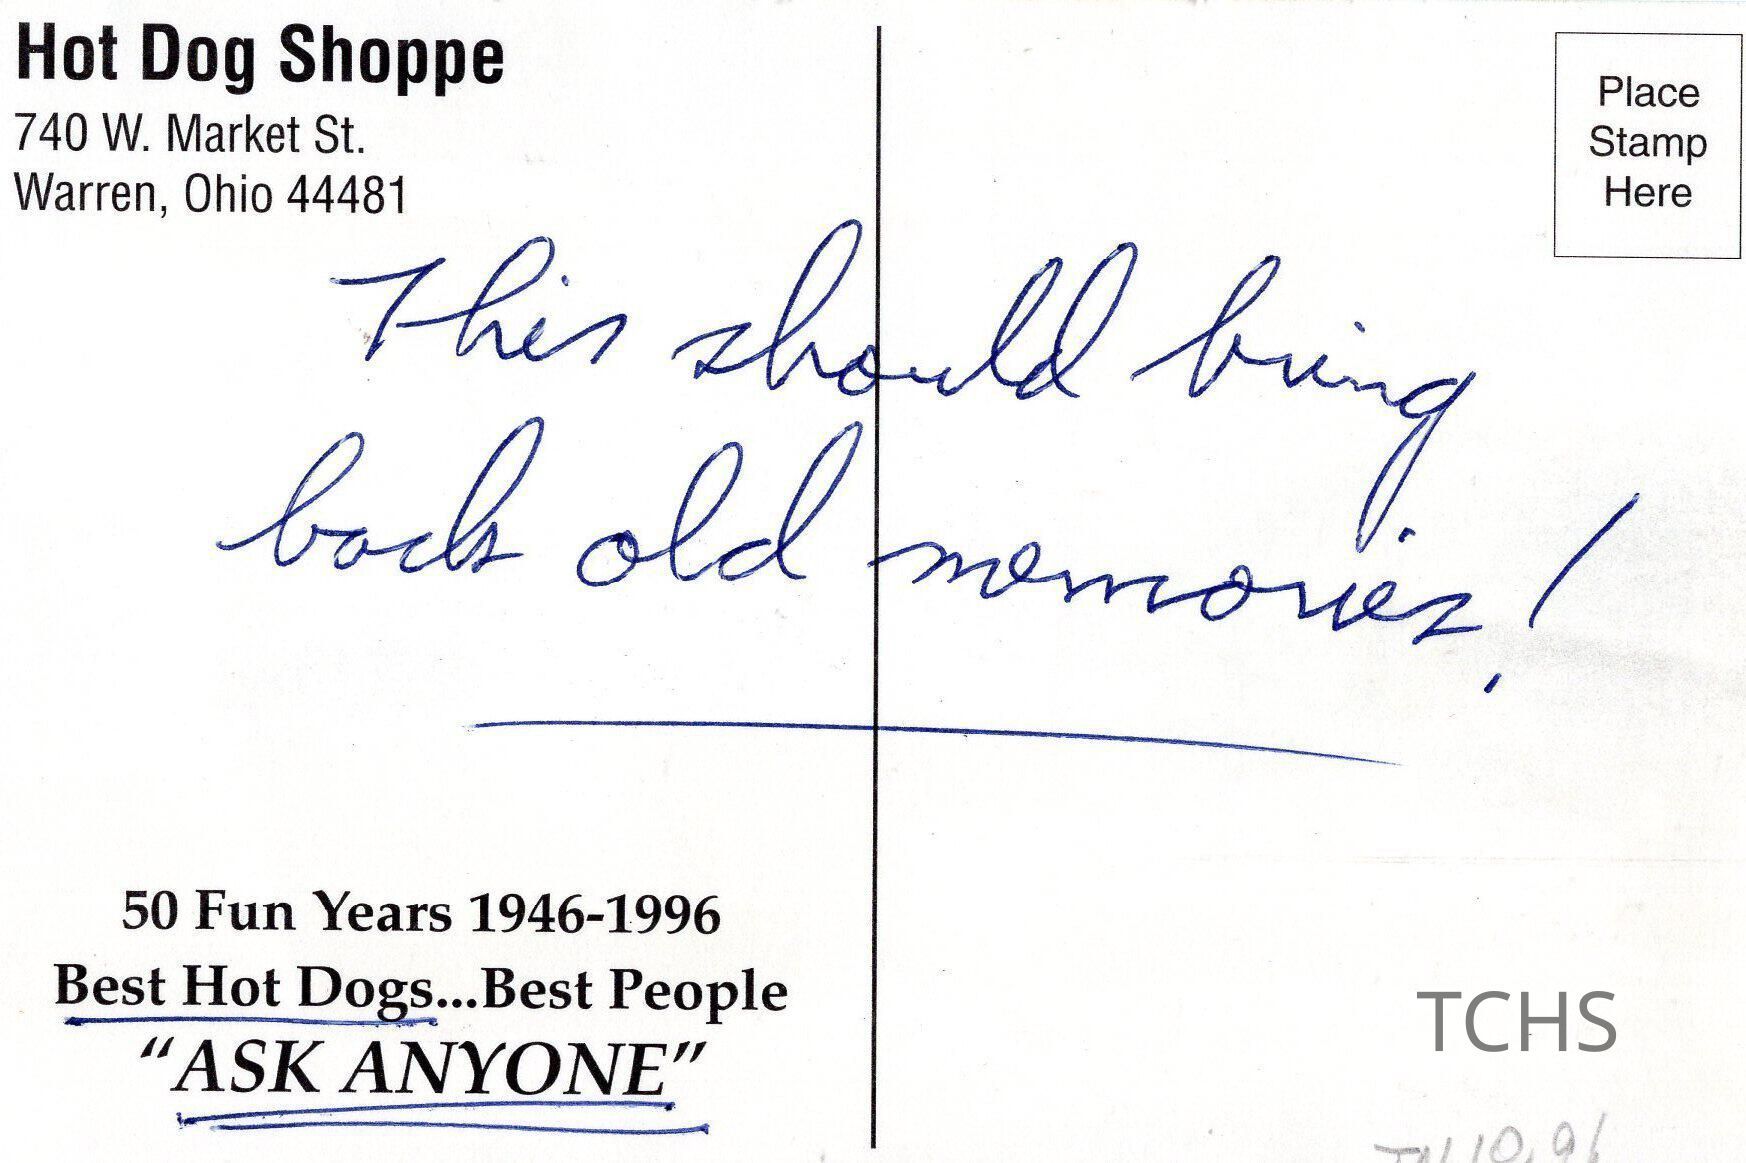 Hot Dog Shoppe
740 W. Market St.
Warren, Ohio 44481
Place
Stamp
Here
This should bring
back old memories!
50 Fun Years 1946-1996
Best Hot Dogs...Best People
“ASK ANYONE”
TCHS